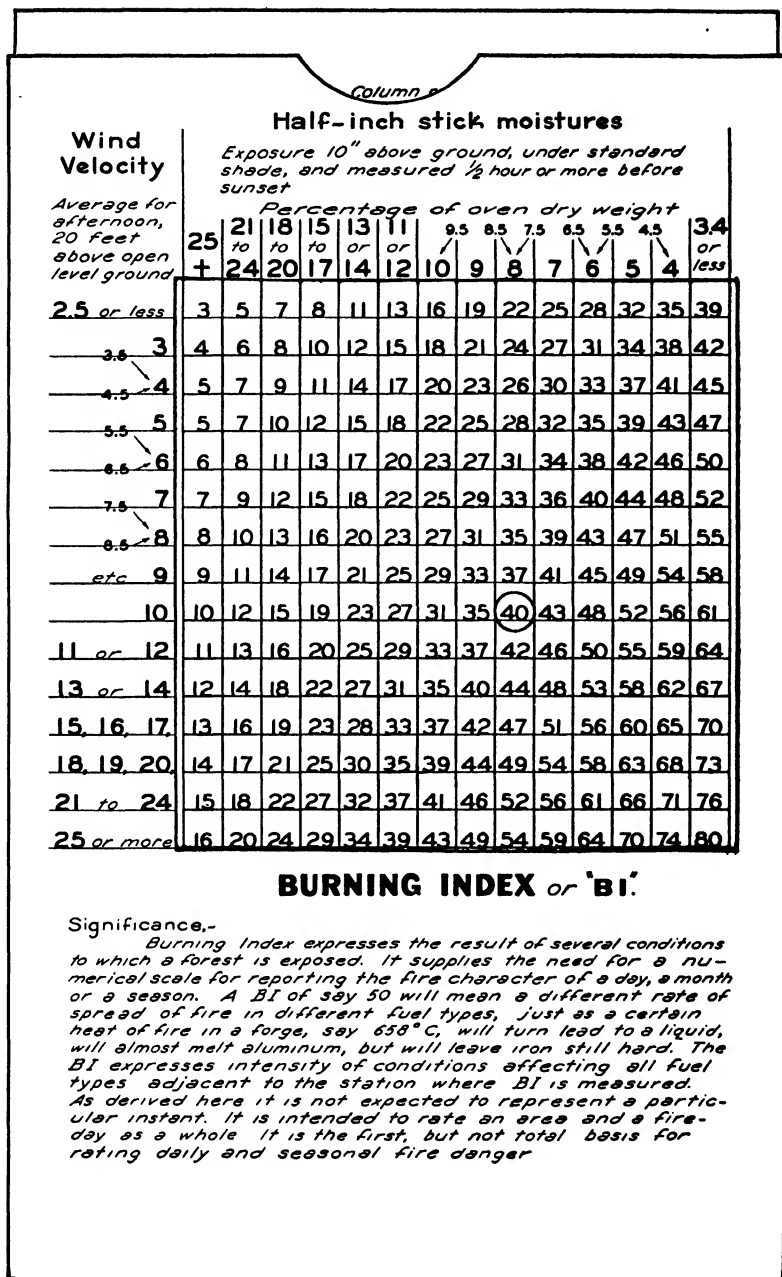 Column
Half-inch stick moistures
Wind
Velocity
Exposure 10" above ground, under standard
shade, and measured 1/2 hour or more before
sunset
Average for
afternoon,
20 feet
above open
level ground
Percentage of oven dry weight
9.5 8.5 7.5 6.5 5.5 4.5
25 + 21 to 24 18 to 20 15 to 17 13 or 14 11 or 12 10 9 8 7 6 5 4 3.4 or less
2.5 or less 3 5 7 8 11 13 16 19 22 25 28 32 35 39
3 4 6 8 10 12 15 18 21 24 27 31 34 38 42
3.5
4.5 4 5 7 9 11 14 17 20 23 26 30 33 37 41 45
5 5 7 10 12 15 18 22 25 28 32 35 39 43 47
5.5
6.5 6 6 8 11 13 17 20 23 27 31 34 38 42 46 50
7 7 9 12 15 18 22 25 29 33 36 40 44 48 52
7.5
8.5 8 8 10 13 16 20 23 27 31 35 39 43 47 51 55
etc 9 9 11 14 17 21 25 29 33 37 41 45 49 54 58
10 10 12 15 19 23 27 31 35 40 43 48 52 56 61
11 or 12 11 13 16 20 25 29 33 37 42 46 50 55 59 64
13 or 14 12 14 18 22 27 31 35 40 44 48 53 58 62 67
15, 16, 17, 13 16 19 23 28 33 37 42 47 51 56 60 65 70
18, 19, 20, 14 17 21 25 30 35 39 44 49 54 58 63 68 73
21 to 24 15 18 22 27 32 37 41 46 52 56 61 66 71 76
25 or more 16 20 24 29 34 39 43 49 54 59 64 70 74 80
BURNING INDEX or "BI".
Significance.-
Burning Index expresses the result of several conditions
to which a forest is exposed. It supplies the need for a nu-
merical scale for reporting the fire character of a day, a month
or a season. A BI of say 50 will mean a different rate of
spread of fire in different fuel types, just as a certain
heat of fire in a forge, say 658°C, will turn lead to a liquid,
will almost melt aluminum, but will leave iron still hard. The
BI expresses intensity of conditions affecting all fuel
types adjacent to the station where BI is measured.
As derived here it is not expected to represent a partic-
ular instant. It is intended to rate an area and a fire-
day as a whole It is the first, but not total basis for
rating daily and seasonal fire danger